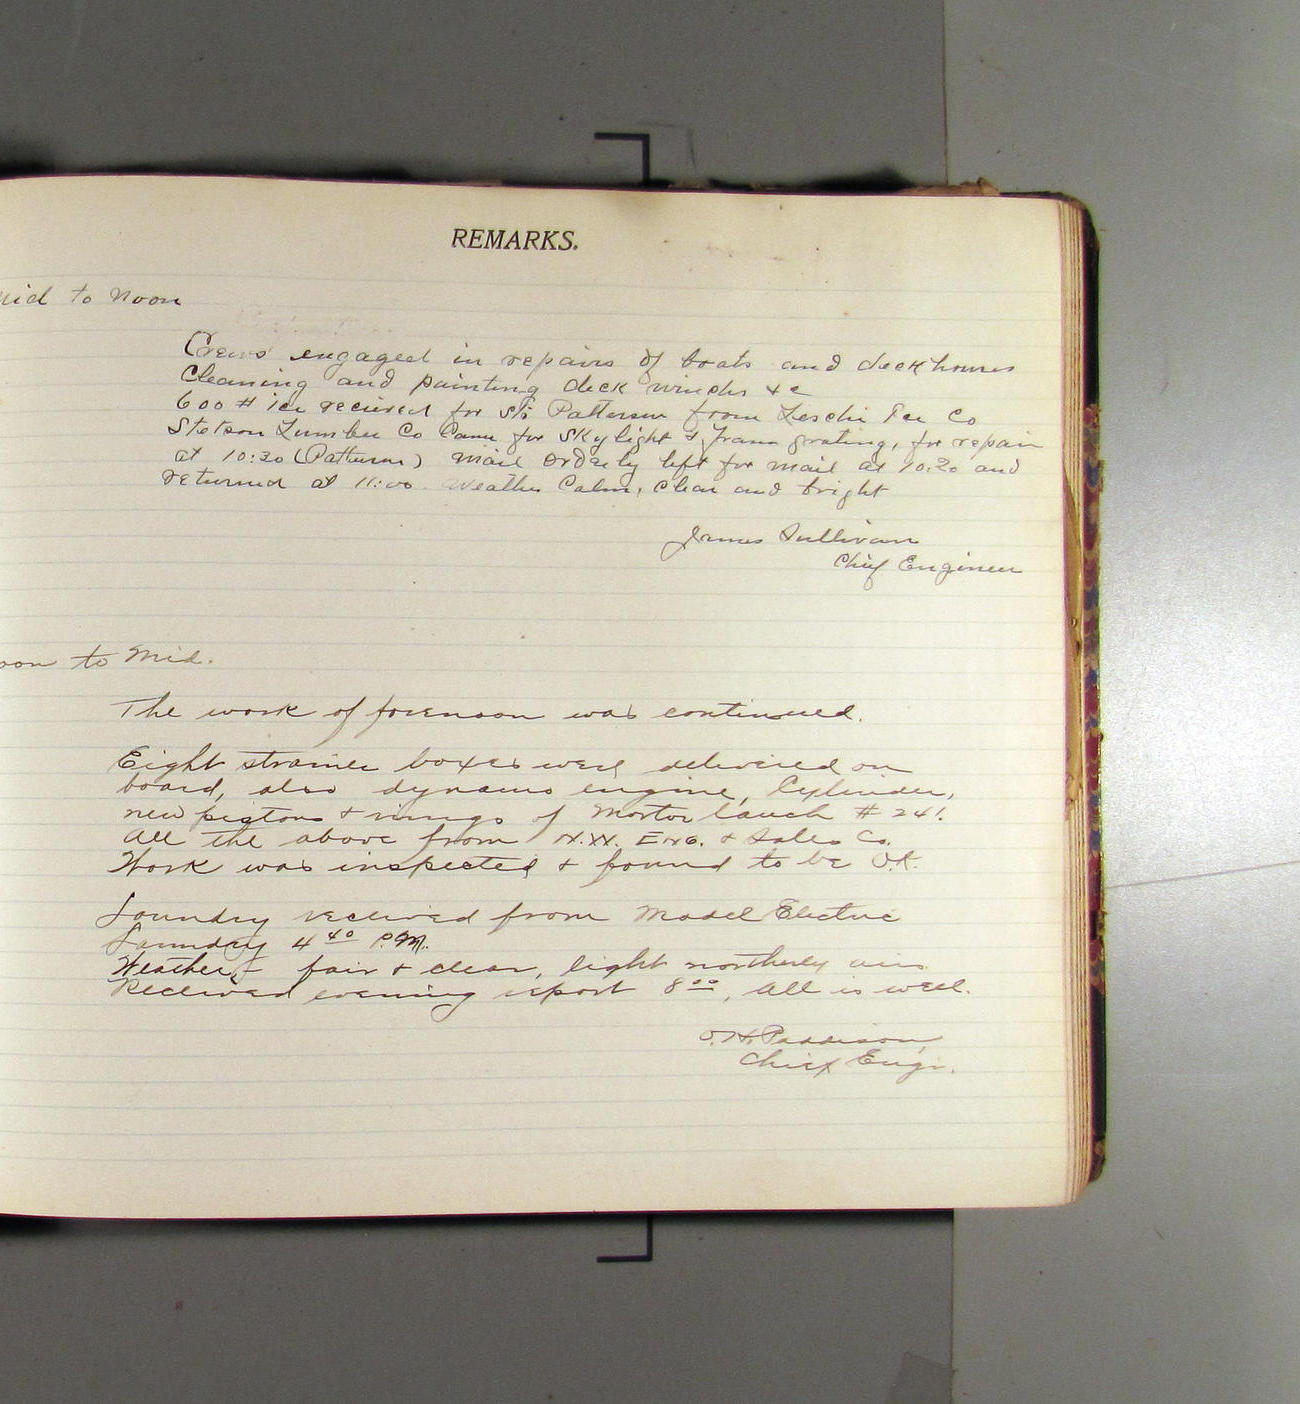 REMARKS.
to Noon
Crews engaged in repairs of boats and deckhouses
Cleaning and painting deck winches &c
600 # ice recieved for Str Patterson from Leschi Ice Co
Stetson Lumber Co Came for Skylight & grating, for repair
at 10:30 (Patterson) Mail Orderly left for mail at 10:20 and
returned at 11:00 Weather Calm, Clear and bright
James Sullivan
Chief Engineer
to Mid.
The work of forenoon was continued.
Eight strainer boxes were delivered on
board, also dynamo engine, Cylinder,
new pistons & rings of Mortor lauch # 241.
All the above from N.W. ENG. & Sales Co.
Work was inspected & found to be O.K.
Laundry received from Model Electric
Laundry 4 40 P.M.
Weather, fair & clear, light northerly airs
Received evening report 8 00, All is well.
Paddison,
Chief Engr.